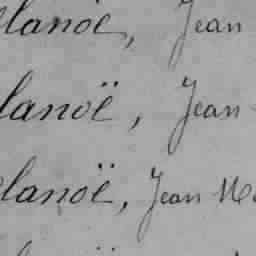 elanoë, Jean
elanoë, Jean
elanoë, Jean